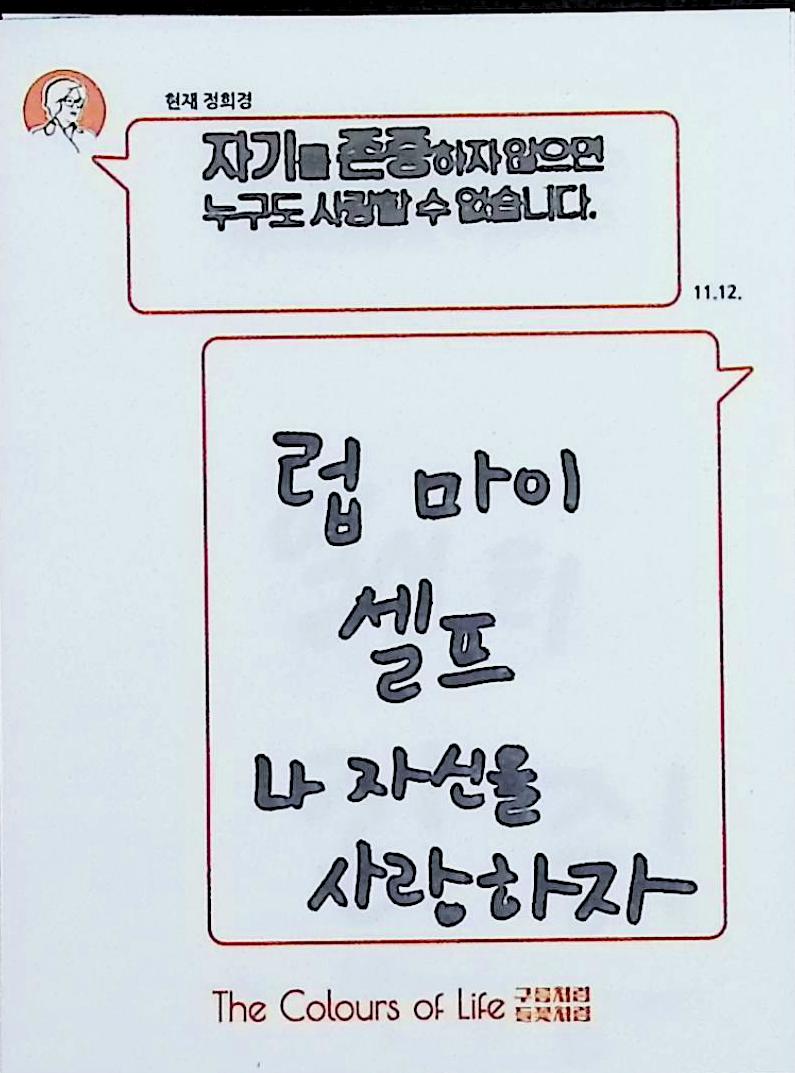 현재 정희경
자기를 존중하지 않으면
누구도 사랑할 수 없습니다.
11.12.
럽 마이
셀프
나 자신을
사랑하자
The Colours of Life 구름처럼
들꽃처럼